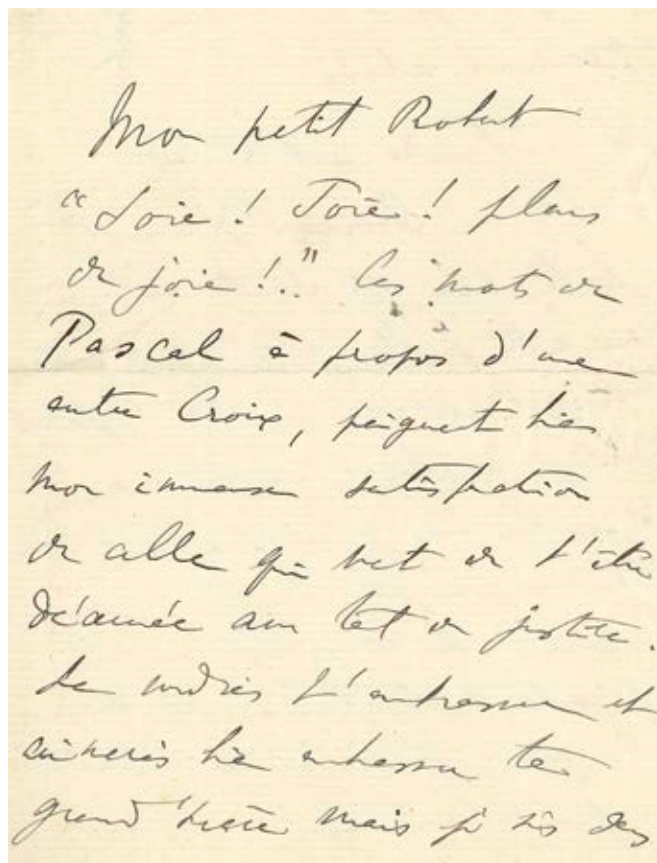 Mon petit Robert
"Joie ! Joie ! pleurs
de joie !.." Ces mots de
Pascal à propos d'une
autre Croix, peignent bien
mon immense satisfaction
de celle qui vient de t'être
décernée avec tant de justice.
Je voudrais t'embrasser et
aimerais bien embrasser ta
grand'mère mais je suis dans